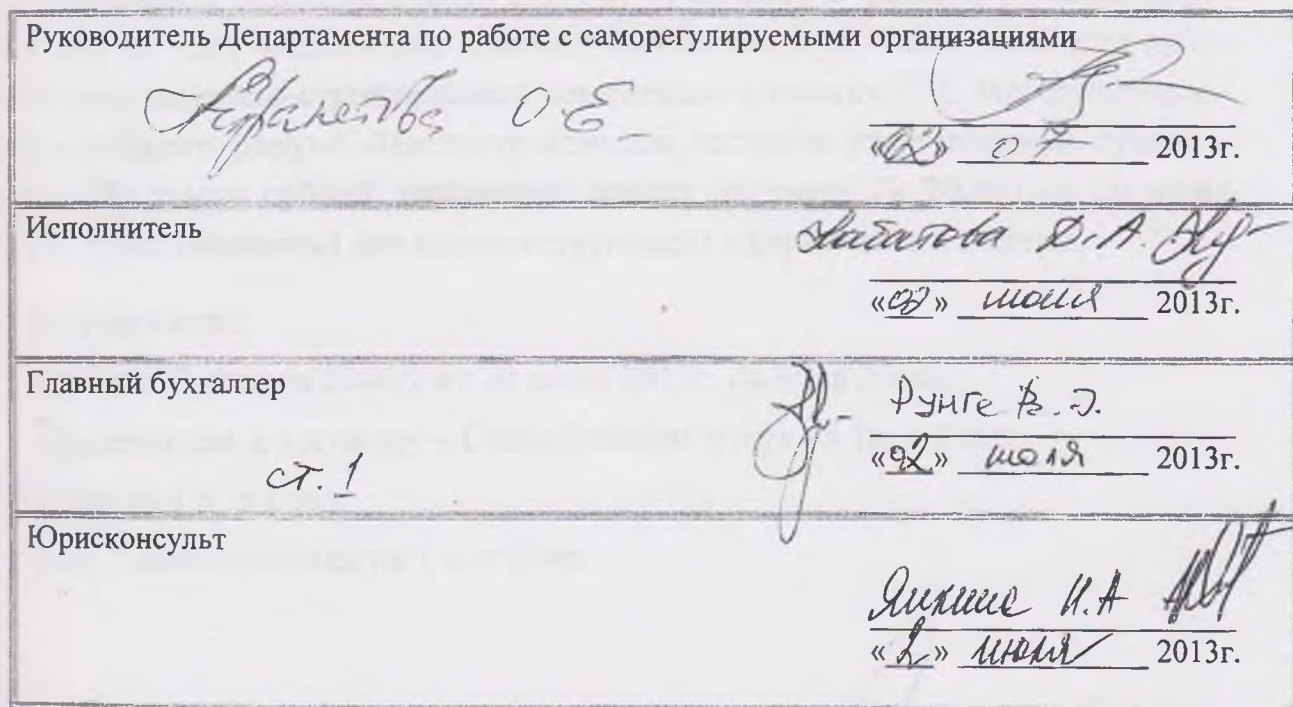 Руководитель Департамента по работе с саморегулируемыми организациями
О.Е.
«02» 07 2013г.
Исполнитель
Д.А.
«02» июля 2013г.
Главный бухгалтер
Рунге В.Э.
«02» июля 2013г.
ст. 1
Юрисконсульт
И.А
«2» июля 2013г.